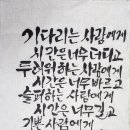 기다리는 사람에게
시간은 너무 더디고
두려워하는 사람에게
시간은 너무 빠르고
슬퍼하는 사람에게
시간은 너무 길고
기쁜 사람에게